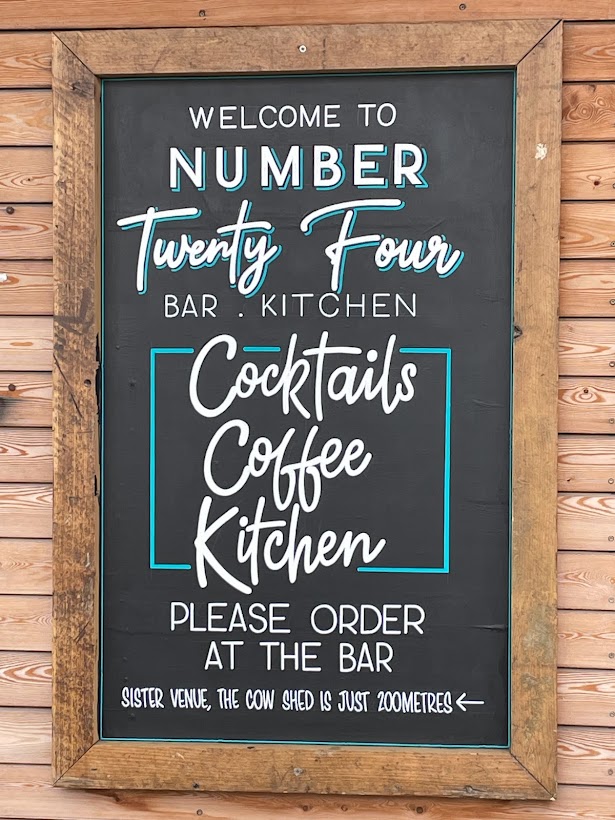 WELCOME TO
NUMBER
Twenty Four
BAR . KITCHEN
Cocktails
Coffee
Kitchen
PLEASE ORDER
AT THE BAR
SISTER VENUE, THE COW SHED IS JUST 200METRES ←